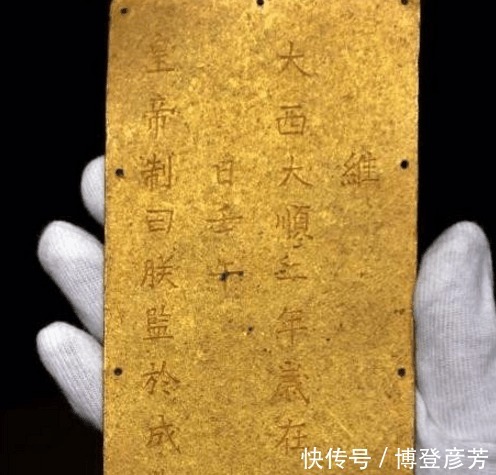 維
大西大順二年歲在
日壬午
皇帝制曰朕監於成
快传号 / 博登彦芳